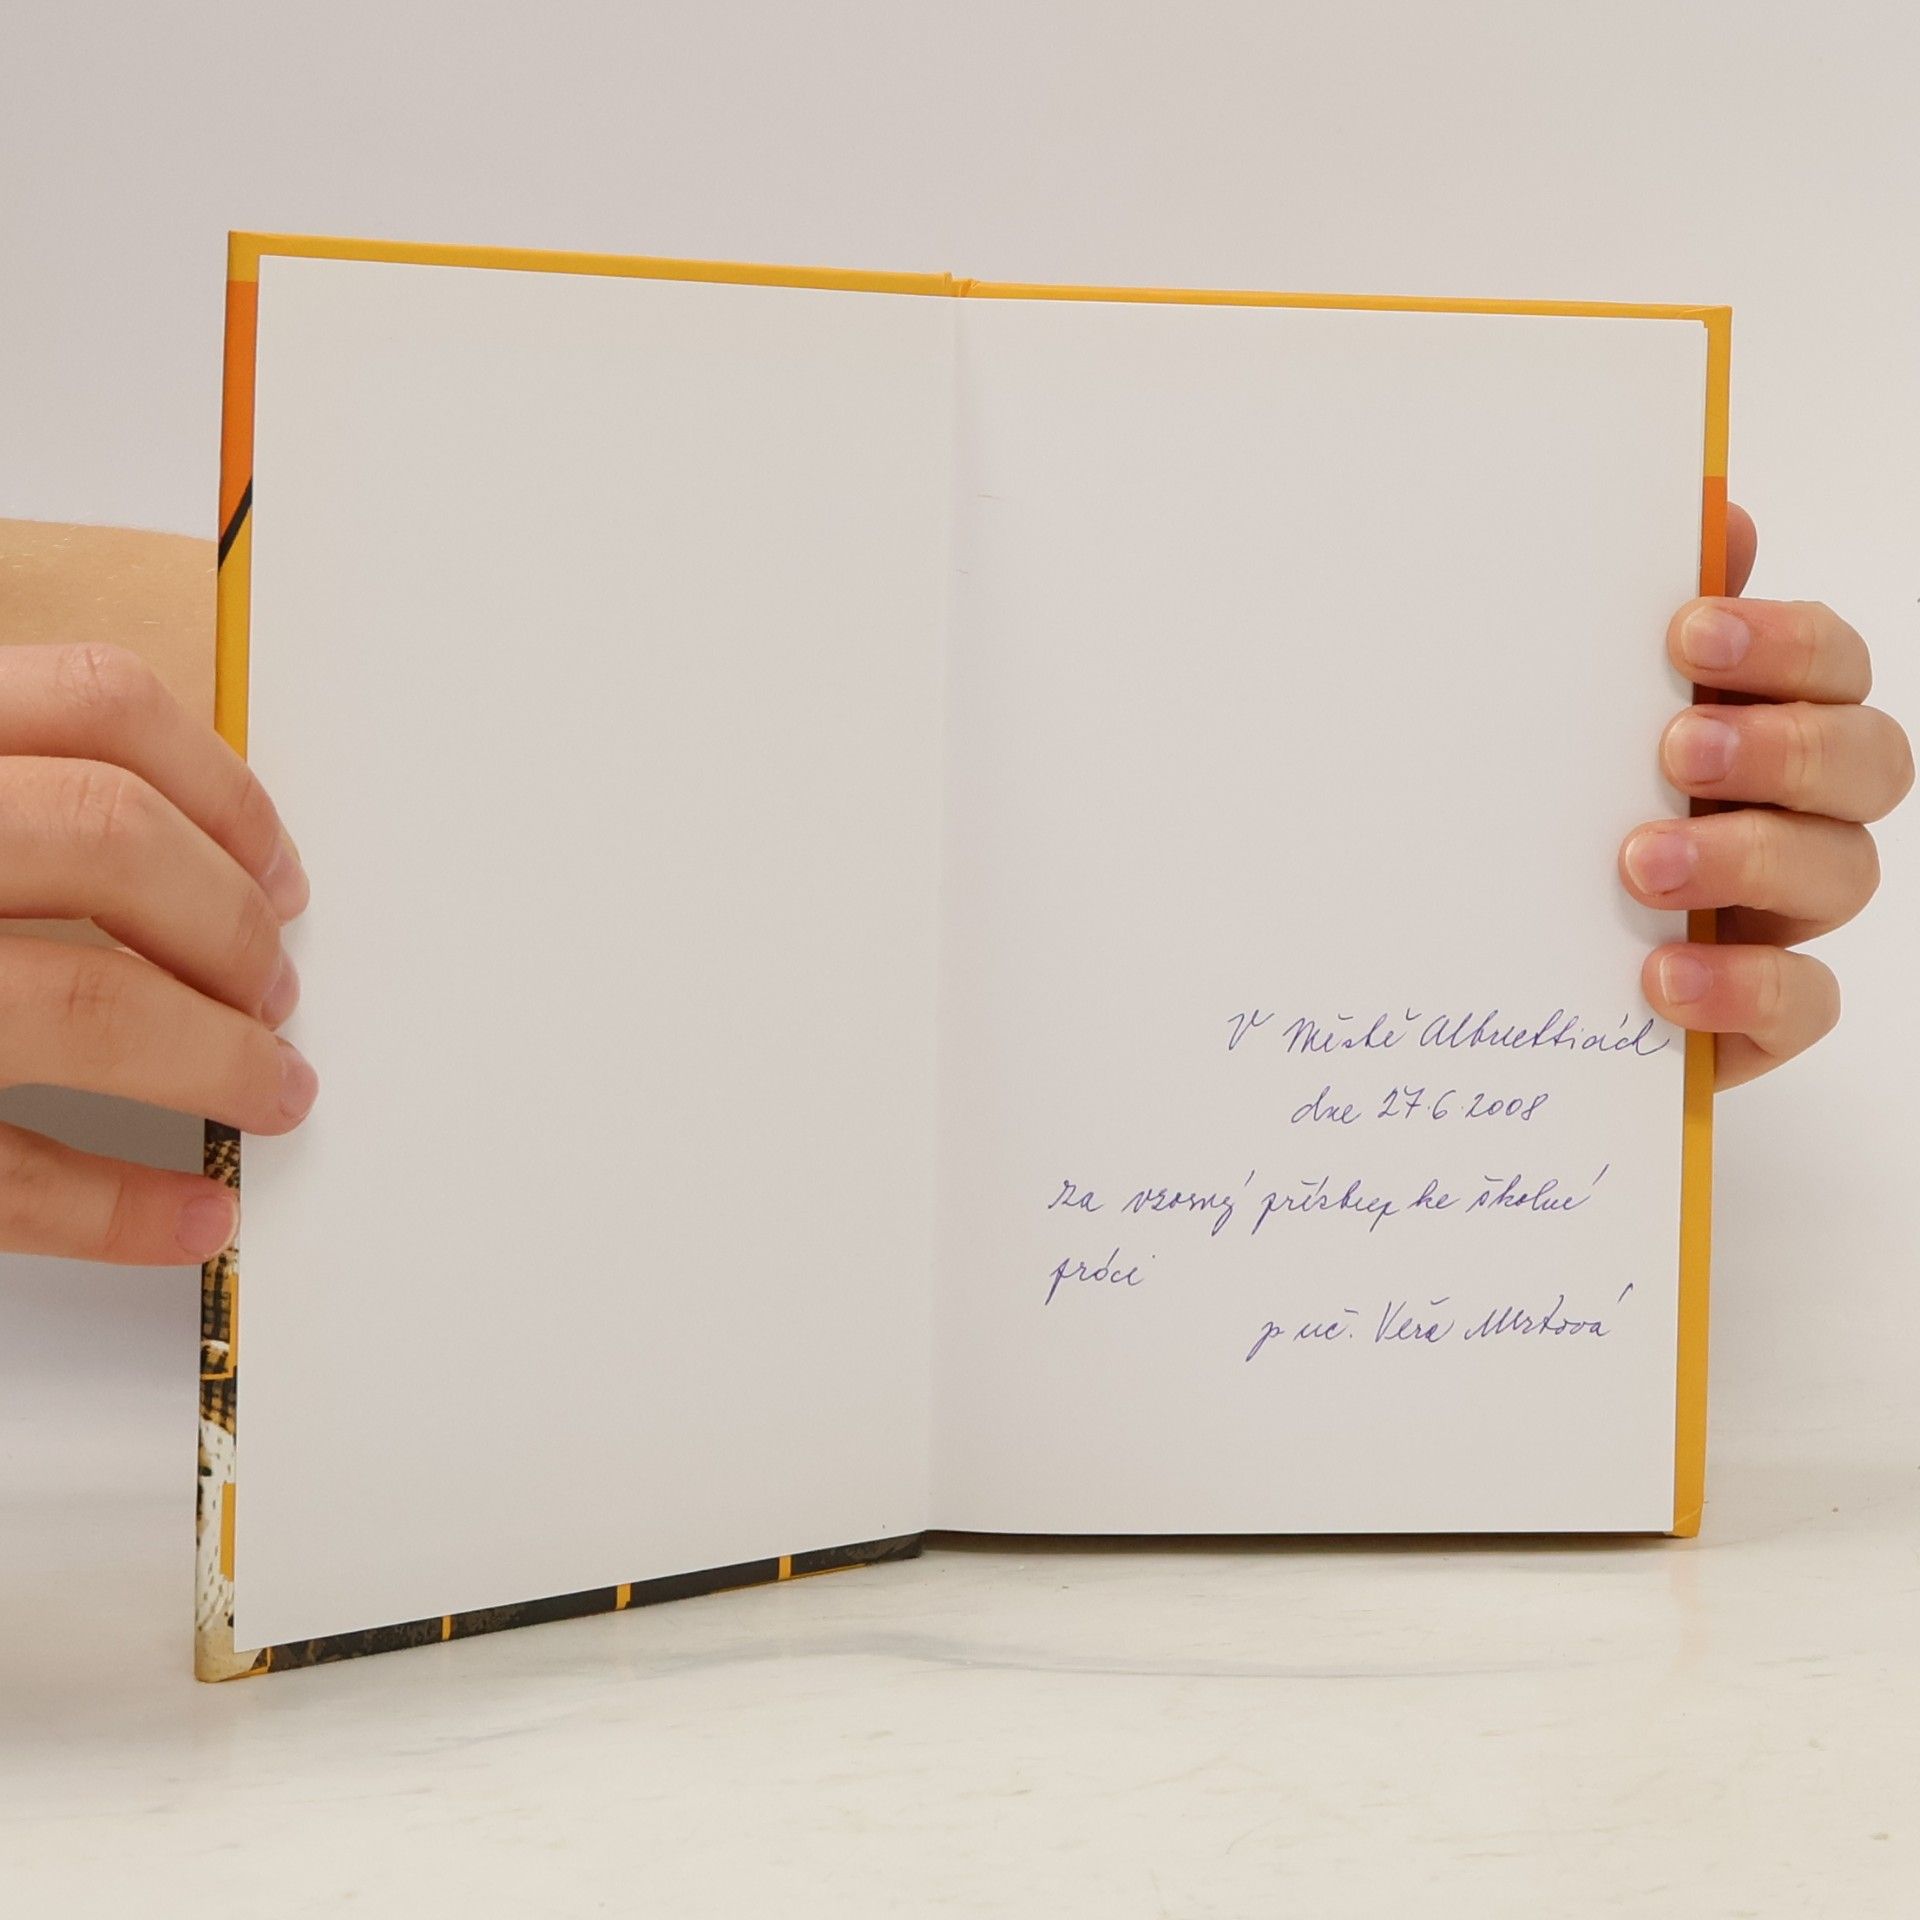 V Městě Albrechticích
dne 27.6.2008
Za vzorný přístup ke školní
práci
p uč. Věra